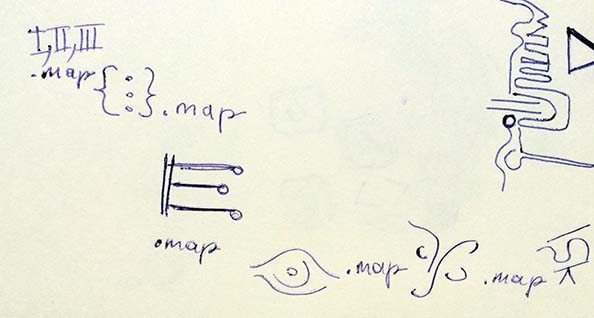 I, II, III
.map { } .map
.map
.map .map